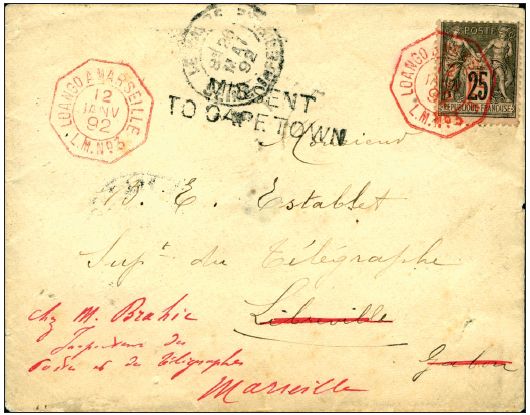 LOANGO A MARSEILLE
12
JANV
92
L.M. Nº3
MAI
92
MISSENT
TO CAPETOWN
LOANGO A
JANV
92
L.M. Nº3
POSTE
25
REPUBLIQUE FRANÇAISE
Monsieur
E. Establet
Supt du Télégraphe
Libreville
Gabon
chez M. Brahic
Inspecteur des
Postes et de Télégraphes
Marseille